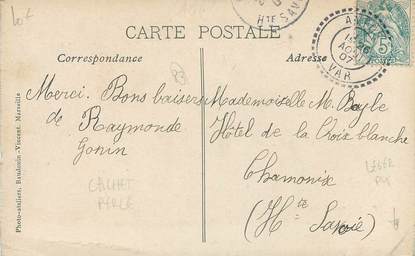 CARTE POSTALE
Correspondance
Adresse
Hte SAV
16
07
VAR
5
Merci. Bons baisers
de Raymonde
Gonin
Mademoiselle M. Bayle
Hôtel de la Croix blanche
Chamonix
(Hte Savoie)
CACHET
PERLÉ
Photo-ateliers, Baudouin-Vincent, Marseille